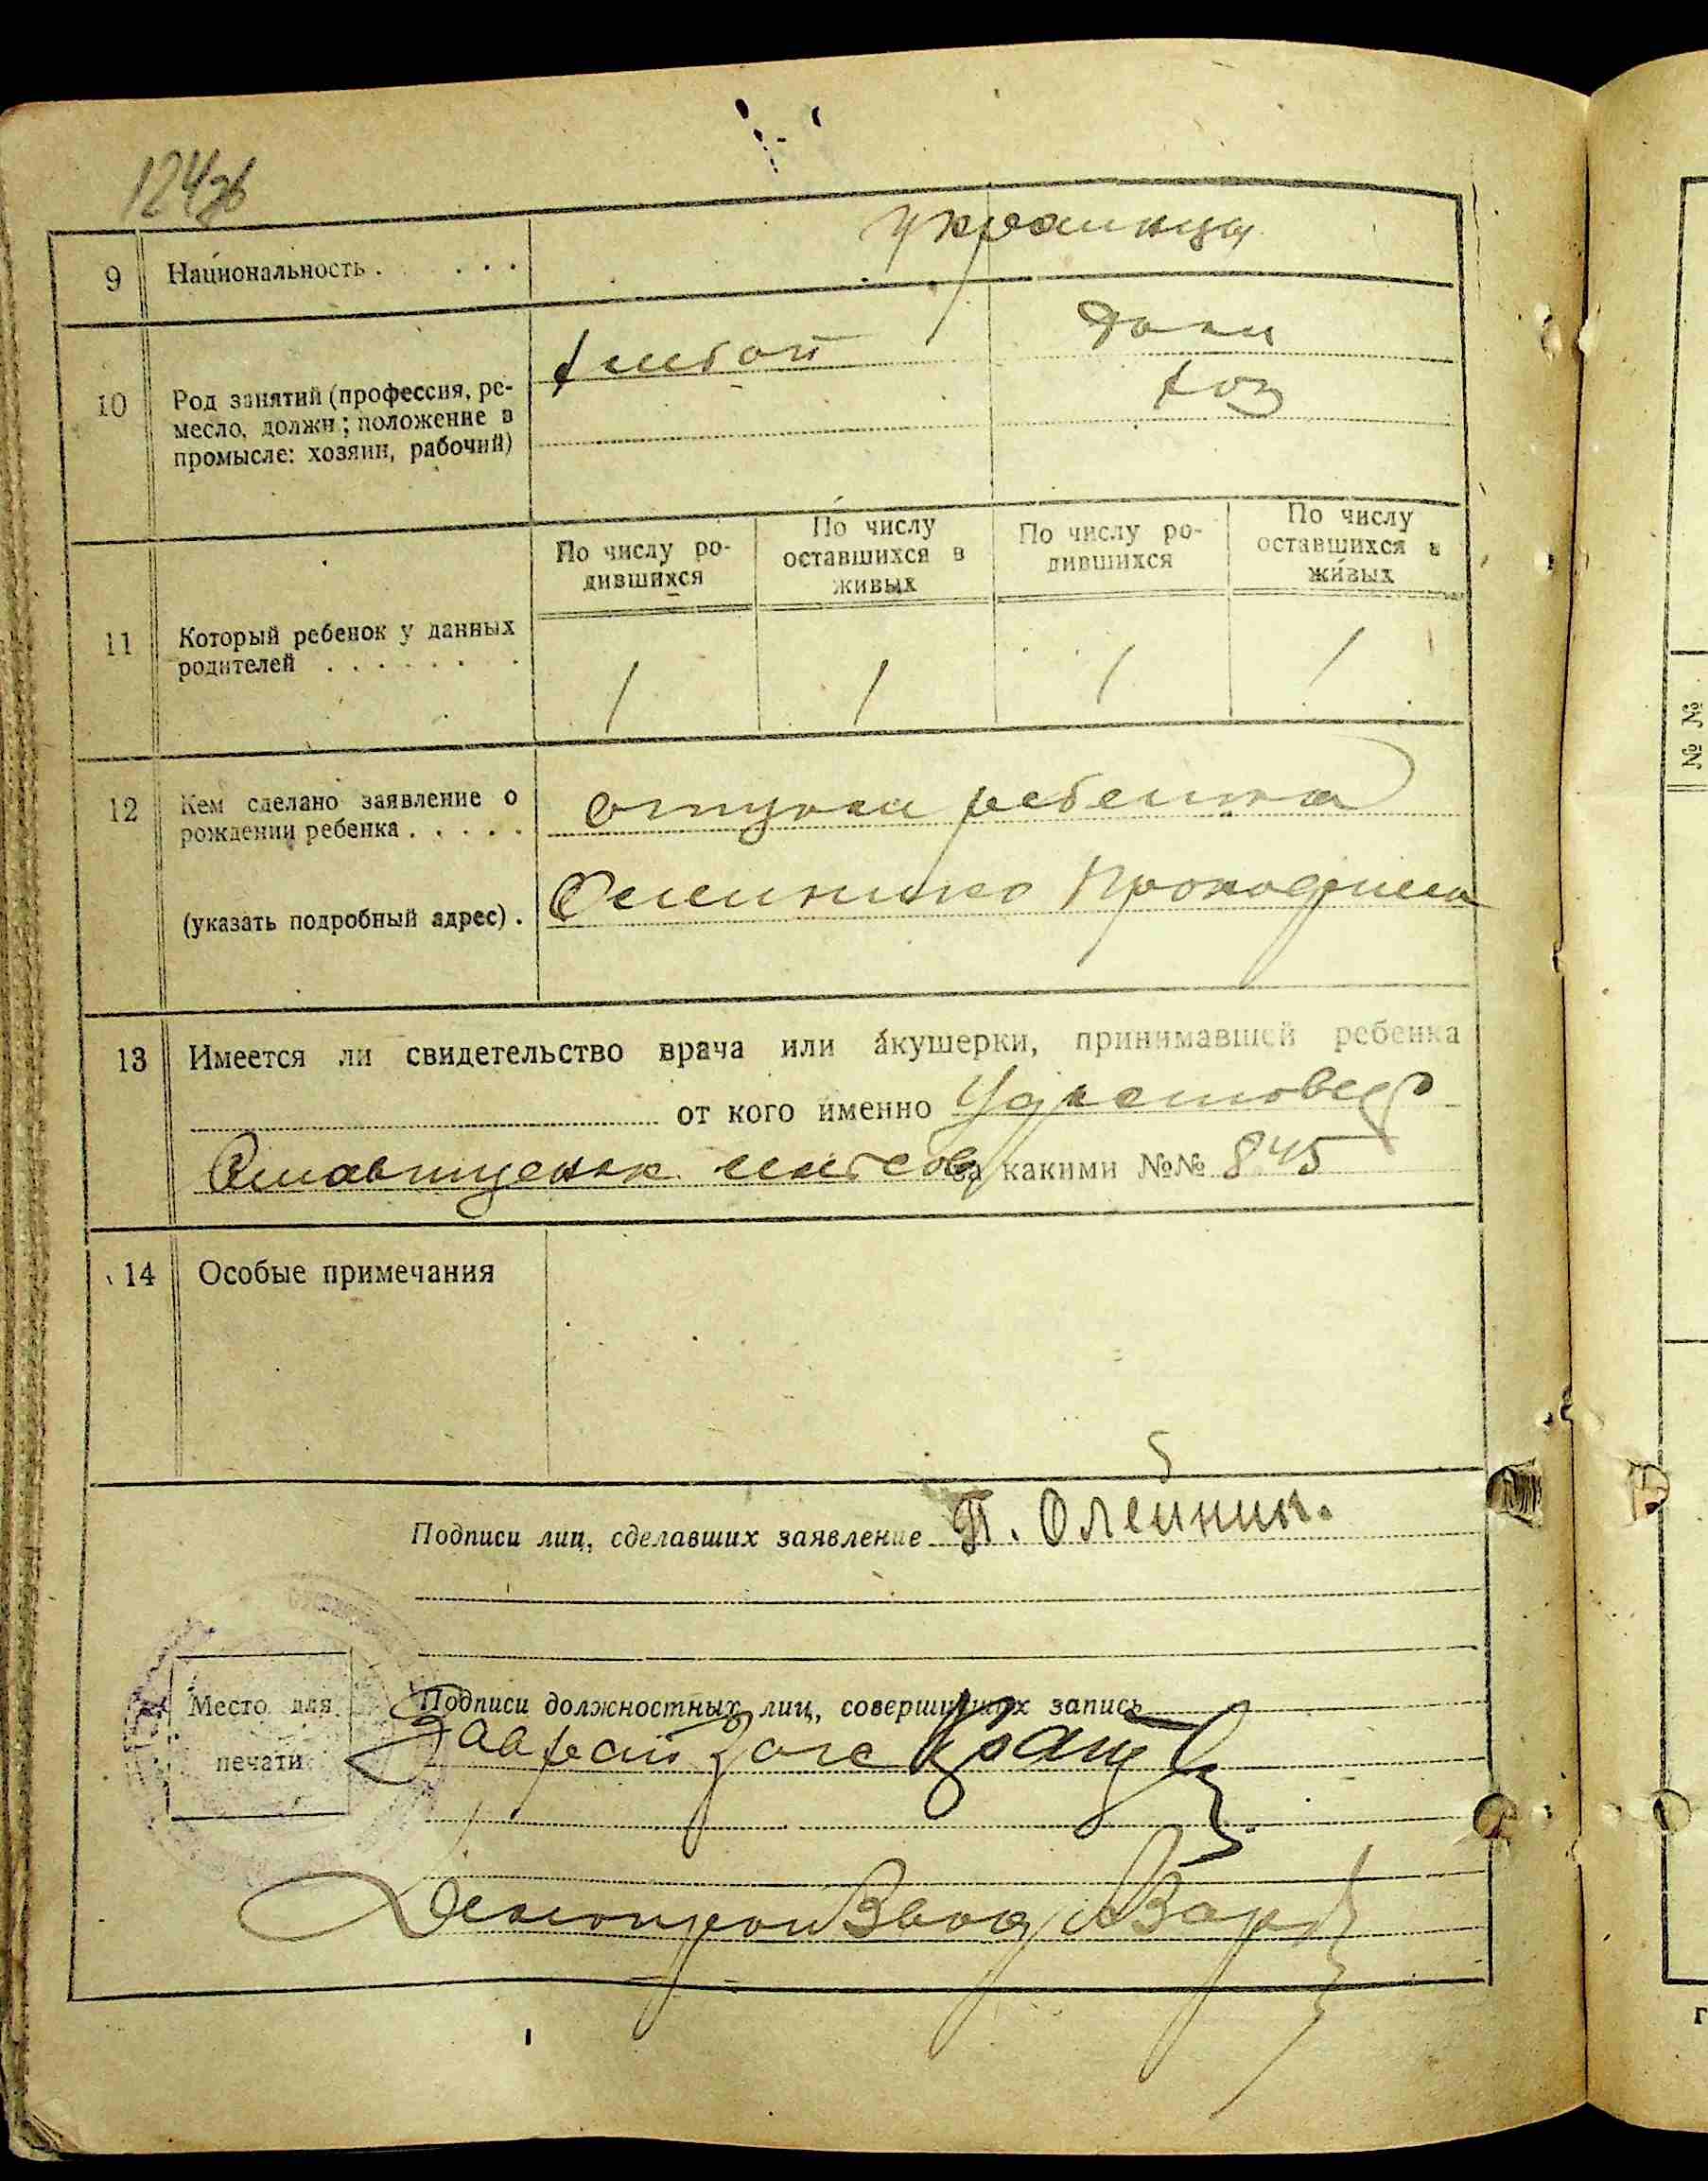 124об
9 Национальность . . . . украинцы
10 Род занятий (профессия, ре-
месло, должн; положение в
промысле: хозяин, рабочий)
дом
хоз
11 Который ребенок у данных
родителей . . . . . . . .
По числу ро-
дившихся
По числу
оставшихся в
живых
По числу ро-
дившихся
По числу
оставшихся в
живых
1 1 1 1
12 Кем сделано заявление о
рождении ребенка . . . . .
ребенка
(указать подробный адрес) .
13 Имеется ли свидетельство врача или акушерки, принимавшей ребенка
от кого именно
за какими №№ 845
14 Особые примечания
Подписи лиц, сделавших заявление П. Олейник.
Место для
печати
Подписи должностных лиц, совершивших запись
Зав рай Загс
Делопроизвод
№ №